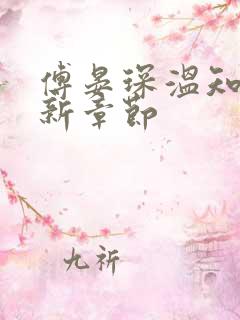 傅晏琛温知
新章节
九祈